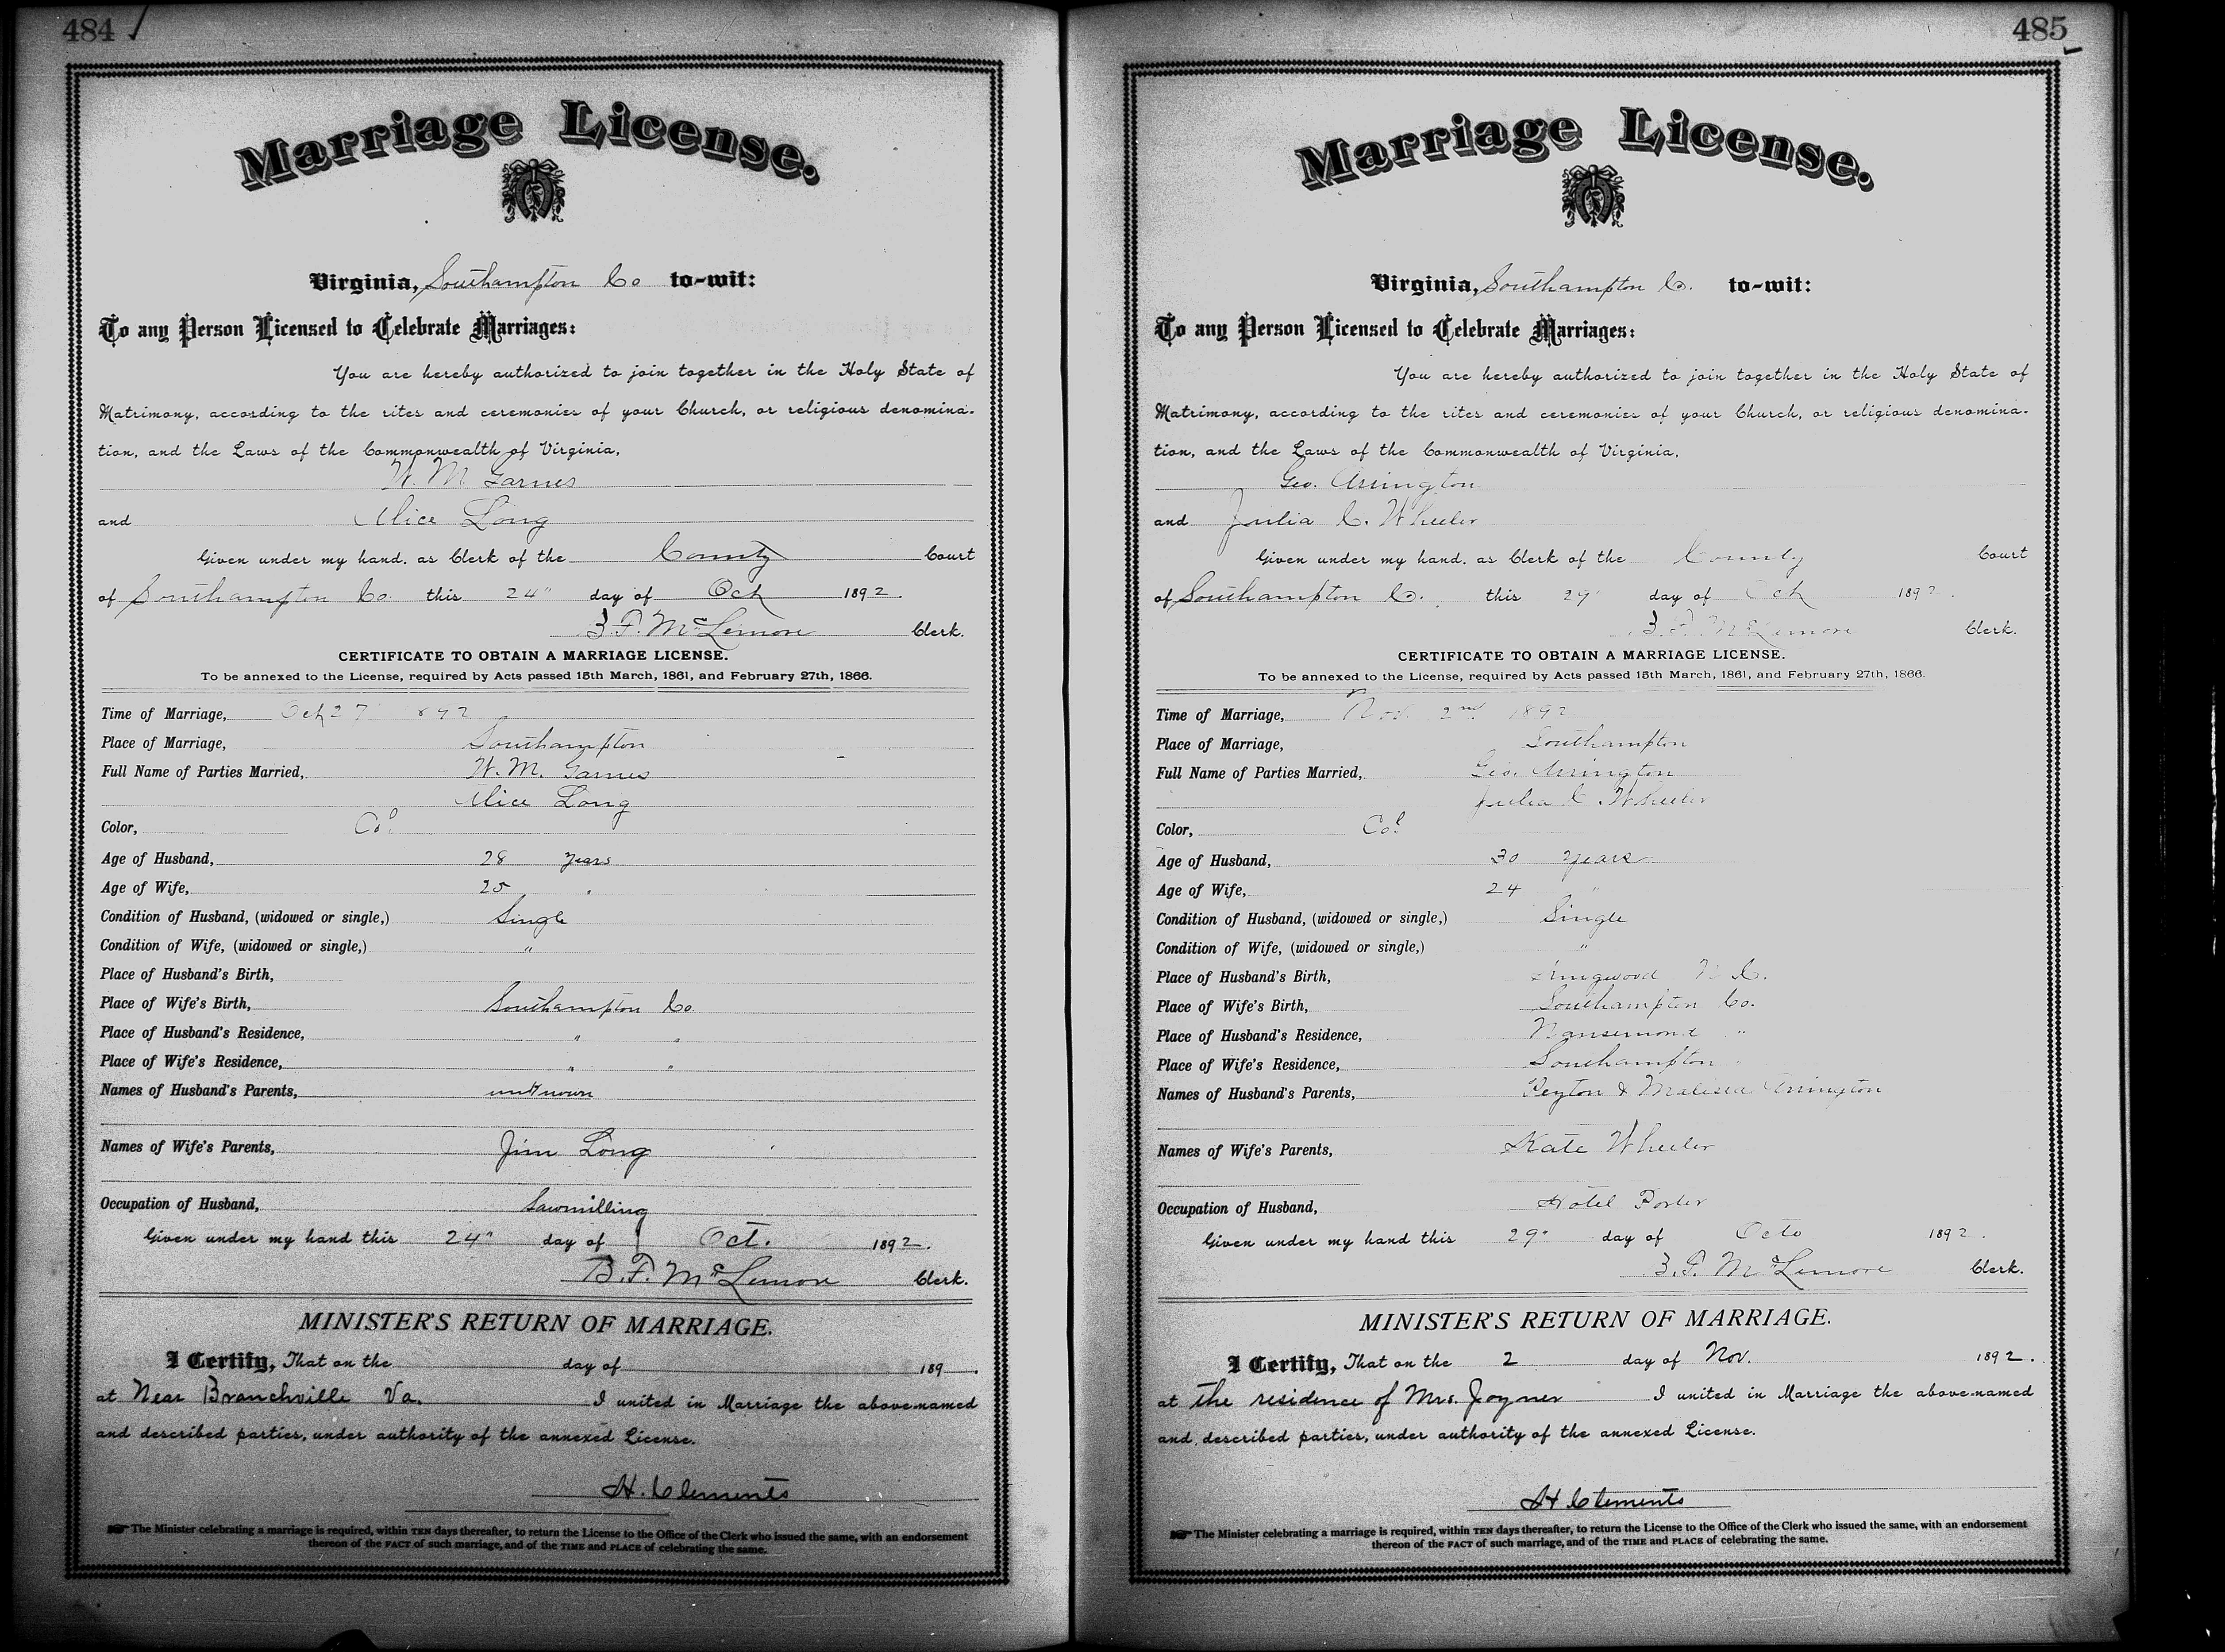 484
Marriage License.
Virginia, Southampton Co to-wit:
To any Person Licensed to Celebrate Marriages:
You are hereby authorized to join together in the Holy State of
Matrimony, according to the rites and ceremonies of your Church, or religious denomina-
tion, and the Laws of the Commonwealth of Virginia,
W. M. Garnes
and Alice Long
Given under my hand, as Clerk of the County Court
of Southampton Co. this 24" day of Oct 1892.
B. F. McLemore Clerk.
CERTIFICATE TO OBTAIN A MARRIAGE LICENSE.
To be annexed to the License, required by Acts passed 15th March, 1861, and February 27th, 1866.
Time of Marriage, Oct 27 1892
Place of Marriage, Southampton
Full Name of Parties Married, W. M. Garnes
Alice Long
Color, Col
Age of Husband, 28 years
Age of Wife, 25 "
Condition of Husband, (widowed or single,) Single
Condition of Wife, (widowed or single,) "
Place of Husband's Birth,
Place of Wife's Birth, Southampton Co.
Place of Husband's Residence, " "
Place of Wife's Residence, " "
Names of Husband's Parents, unknown
Names of Wife's Parents, Jim Long
Occupation of Husband, Sawmilling
Given under my hand this 24" day of Oct. 1892.
B. F. McLemore Clerk.
MINISTER'S RETURN OF MARRIAGE.
I Certify, That on the day of 189 .
at Near Branchville Va. I united in Marriage the above-named
and described parties, under authority of the annexed License.
H. Clements
The Minister celebrating a marriage is required, within TEN days thereafter, to return the License to the Office of the Clerk who issued the same, with an endorsement
thereon of the FACT of such marriage, and of the TIME and PLACE of celebrating the same.
485
Marriage License.
Virginia, Southampton Co. to-wit:
To any Person Licensed to Celebrate Marriages:
You are hereby authorized to join together in the Holy State of
Matrimony, according to the rites and ceremonies of your Church, or religious denomina-
tion, and the Laws of the Commonwealth of Virginia,
Geo. Arrington
and Julia C. Wheeler
Given under my hand, as Clerk of the County Court
of Southampton Co. this 29" day of Oct 1892.
B. F. McLemore Clerk.
CERTIFICATE TO OBTAIN A MARRIAGE LICENSE.
To be annexed to the License, required by Acts passed 15th March, 1861, and February 27th, 1866.
Time of Marriage, Nov. 2nd 1892
Place of Marriage, Southampton
Full Name of Parties Married, Geo. Arrington
Julia C. Wheeler
Color, Col
Age of Husband, 30 years
Age of Wife, 24 "
Condition of Husband, (widowed or single,) Single
Condition of Wife, (widowed or single,) "
Place of Husband's Birth, Ringwood N. C.
Place of Wife's Birth, Southampton Co.
Place of Husband's Residence, Nansemond "
Place of Wife's Residence, Southampton "
Names of Husband's Parents, Peyton & Malissa Arrington
Names of Wife's Parents, Kate Wheeler
Occupation of Husband, Hotel Porter
Given under my hand this 29" day of Octo 1892.
B. F. McLemore Clerk.
MINISTER'S RETURN OF MARRIAGE.
I Certify, That on the 2 day of Nov. 1892.
at the residence of Mrs. Joyner I united in Marriage the above-named
and described parties, under authority of the annexed License.
H Clements
The Minister celebrating a marriage is required, within TEN days thereafter, to return the License to the Office of the Clerk who issued the same, with an endorsement
thereon of the FACT of such marriage, and of the TIME and PLACE of celebrating the same.